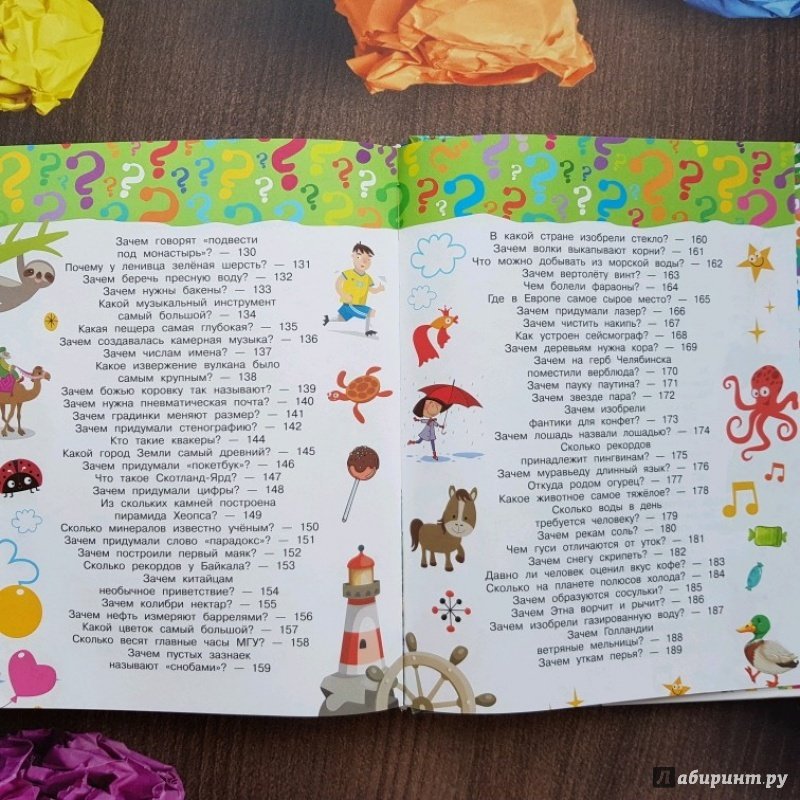 Зачем говорят «подвести
под монастырь»? — 130
Почему у ленивца зелёная шерсть? — 131
Зачем беречь пресную воду? — 132
Зачем нужны бакены? — 133
Какой музыкальный инструмент
самый большой? — 134
Какая пещера самая глубокая? — 135
Зачем создавалась камерная музыка? — 136
Зачем числам имена? — 137
Какое извержение вулкана было
самым крупным? — 138
Зачем божью коровку так называют? — 139
Зачем нужна пневматическая почта? — 140
Зачем градинки меняют размер? — 141
Зачем придумали стенографию? — 142
Кто такие квакеры? — 144
Какой город Земли самый древний? — 145
Зачем придумали «покетбук»? — 146
Что такое Скотланд-Ярд? — 147
Зачем придумали цифры? — 148
Из скольких камней построена
пирамида Хеопса? — 149
Сколько минералов известно учёным? — 150
Зачем придумали слово «парадокс»? — 151
Зачем построили первый маяк? — 152
Сколько рекордов у Байкала? — 153
Зачем китайцам
необычное приветствие? — 154
Зачем колибри нектар? — 155
Зачем нефть измеряют баррелями? — 156
Какой цветок самый большой? — 157
Сколько весят главные часы МГУ? — 158
Зачем пустых зазнаек
называют «снобами»? — 159
В какой стране изобрели стекло? — 160
Зачем волки выкапывают корни? — 161
Что можно добывать из морской воды? — 162
Зачем вертолёту винт? — 163
Чем болели фараоны? — 164
Где в Европе самое сырое место? — 165
Зачем придумали лазер? — 166
Зачем чистить накипь? — 167
Как устроен сейсмограф? — 168
Зачем деревьям нужна кора? — 169
Зачем на герб Челябинска
поместили верблюда? — 170
Зачем пауку паутина? — 171
Зачем звезде пара? — 172
Зачем изобрели
фантики для конфет? — 173
Зачем лошадь назвали лошадью? — 174
Сколько рекордов
принадлежит пингвинам? — 175
Зачем муравьеду длинный язык? — 176
Откуда родом огурец? — 177
Какое животное самое тяжёлое? — 178
Сколько воды в день
требуется человеку? — 179
Зачем рекам соль? — 180
Чем гуси отличаются от уток? — 181
Зачем снегу скрипеть? — 182
Давно ли человек оценил вкус кофе? — 183
Сколько на планете полюсов холода? — 184
Зачем образуются сосульки? — 185
Зачем Этна ворчит и рычит? — 186
Зачем изобрели газированную воду? — 187
Зачем Голландии
ветряные мельницы? — 188
Зачем уткам перья? — 189
Лабиринт.ру